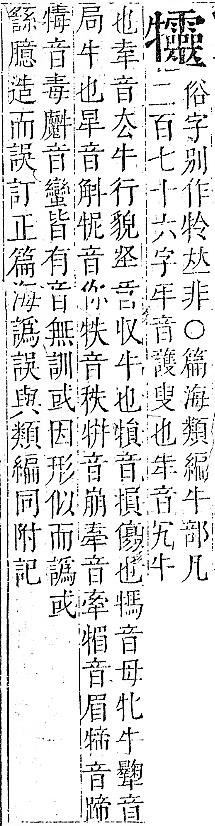 俗字別作㸳𠀤非○篇海類編牛部凡
二百七十六字音護叟也音冗牛
也音厺牛行貌音収牛也音損傷也音母牝牛音
局牛也音斛音你音秩音崩音牽音眉音蹄
犢音毒音蠻皆有音無訓或因形似而譌或
繇臆造而誤訂正篇海譌誤與類編同附記